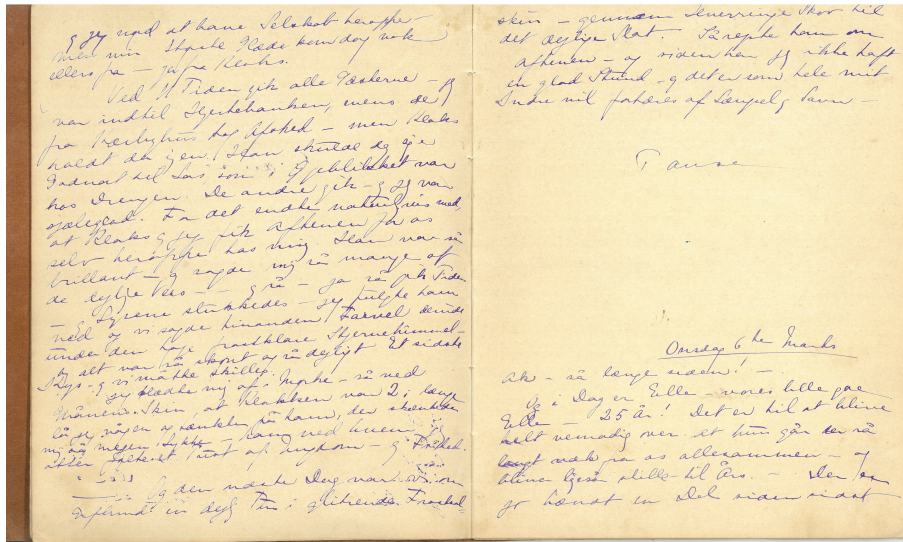 og jeg nød at have Selskab heroppe –
Men min største Glæde kom dog nok
ellers fra – ja fra Klaks.
Ved 11 Tiden gik alle Gæsterne – jeg
var indtil Hjertebanken, mens de
fra Kærbyhus tog Afsked – men Klaks
holdt da igen. Han skulde
Godnat til som i Øjeblikket var
hos Drengen. De andre gik – og jeg var
sjæleglad. For det endte naturligvis med,
at Klaks og jeg fik Aftenen for os
selv heroppe hos mig. Han var så
brillant – og sagde mig så mange af
de Vers – og så – ja så gik Tiden
– slukkedes – jeg fulgte ham
ned og vi sagde hinanden Farvel
under den høje frostklare Stjernehimmel –
og alt var så skønt og så dejligt Et sidste
Kys – og vi måtte skilles.
Jeg klædte mig af i Mørke – så ved
Månens Skin, at Klokken var 2, længe
lå jeg vågen og tænkte på ham, der skænkede
mig så megen Lykke –
af Ungdom – og Friskhed.
Og den næste Dag var vi om
en dejlig Tur i glitrende Frostsol
skin – gennem Snerringe Skov til
det dejlige Slot. Så rejste han om
Aftenen – og siden har jeg ikke haft
en glad Stund – og det er som hele mit
Indre vil fortæres af Længsel og Savn –
Pause
Onsdag 6te Marts
Ak – så længe siden! –
Og i Dag er Elle – vores lille gae
Elle – 25 År! Det er til at blive
helt vemodig over at hun går så
langt væk fra os allesammen – og
bliver ligeså stille til Års. – Der er
jo hændt en Del siden sidst